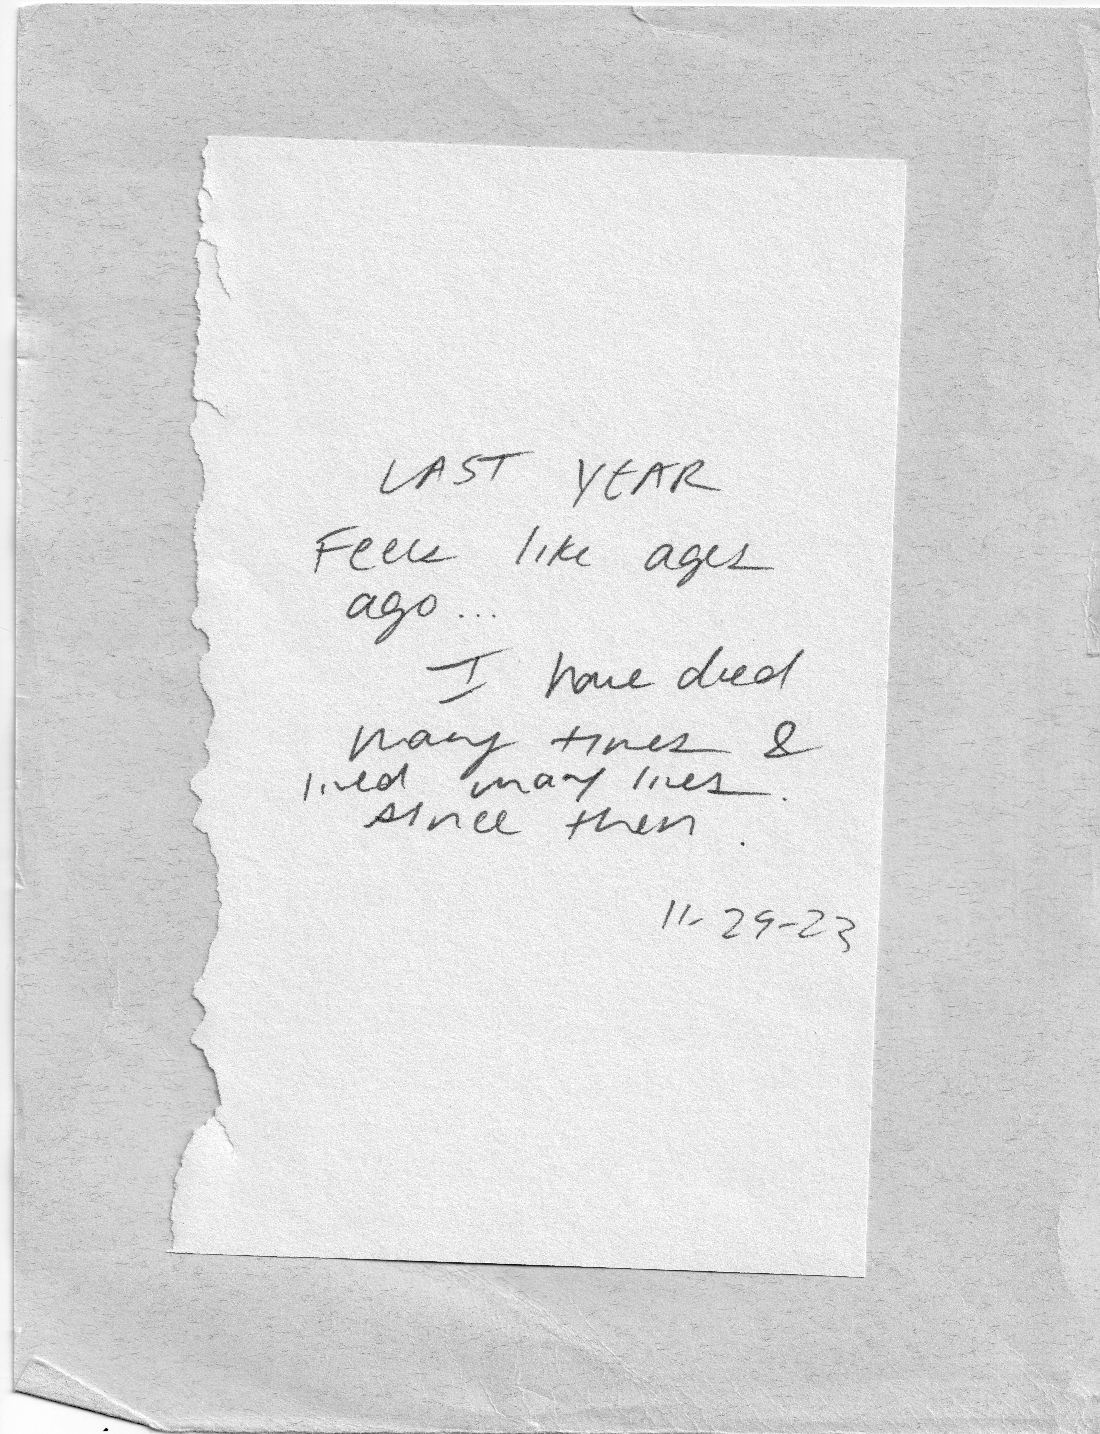 LAST YEAR
Feels like ages
ago...
I have died
many times &
lived many lives.
since then.
11-29-23